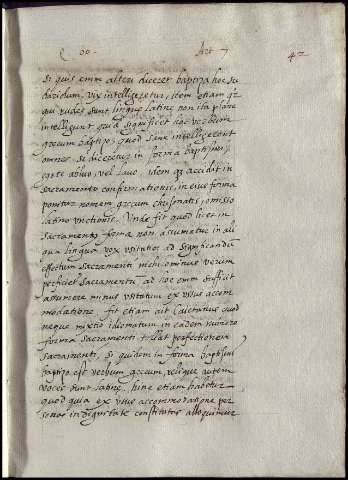 Q. 60. Art 7 42
si quis enim alteri diceret baptiza hoc su
darium, vix intelligeretur, idem etiam qz
qui rudes sunt linguae latinae non ita plane
intelligunt quid significet hoc verbum
grecum baptizo, quod sane intelligerent
omnes si diceretur in forma baptismi
ego te abluo, vel lavo, idem qz accidit in
sacramento confirmationis, in cuius forma
ponitur nomen grecum chrismatis, omisso
latino unctionis. Unde fit quod licet in
sacramento forma non assumatur in ali
qua lingua vox usitatior ad significandum
effectum sacramenti nichilominus verum
perficiet sacramentum ad hoc enim sufficit
assumere minus usitatum ex usus accom
modatione. fit etiam ait Caietanus quod
neque mixtio idiomatum in eadem numero
forma sacramenti tollat perfectionem
sacramenti, si quidem in forma baptismi
baptizo est verbum grecum, reliquae autem
voces sunt latinae, hinc etiam habetur
quod quia ex usus accommodatione per
sonas in dignitate constitutas alloquimur